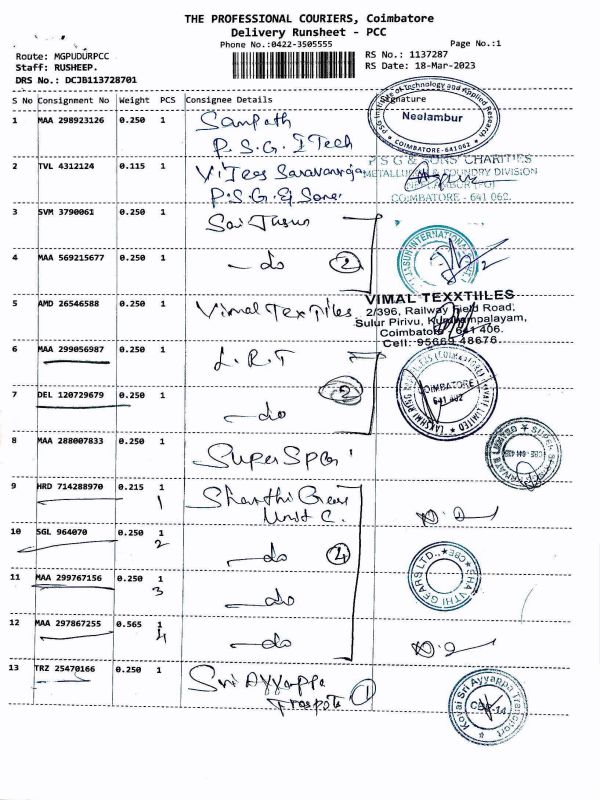 THE PROFESSIONAL COURIERS, Coimbatore
Delivery Runsheet - PCC
Phone No.:0422-3505555
Page No.:1
Route: MGPUDURPCC
RS No.: 1137287
Staff: RUSHEEP.
RS Date: 18-Mar-2023
DRS No.: DCJB113728701
S No Consignment No Weight PCS Consignee Details Signature
1 MAA 298923126 0.250 1 Sampath
P.S.G. I Tech
PSG Institute of Technology and Applied Research
Neelambur
COIMBATORE-641062
2 TVL 4312124 0.115 1
P.S.G &
P S G & SONS' CHARITIES
METALLURGY & FOUNDRY DIVISION
NEELAMBUR POST
COIMBATORE - 641 062.
3 SVM 3790061 0.250 1 Sai Jasun
4 MAA 569215677 0.250 1 - do 2
JASUN INTERNATIONAL
2
5 AMD 26546588 0.250 1 Vimal TexTiles
VIMAL TEXXTIILES
2/396, Railway Field Road,
Sulur Pirivu, Kurumbapalayam,
Coimbatore - 641 406.
Cell: 95669 48676.
6 MAA 299056987 0.250 1 L.R.T
7 DEL 120729679 0.250 1 - do 2
COIMBATORE
641 402
LAKSHMI RING TRAVELLERS (COIMBATORE) PRIVATE LIMITED
8 MAA 288007833 0.250 1 Super Spin
9 HRD 714288970 0.215 1 Shanthi Gears
1 Unit C.
10 SGL 964070 0.250 1 - do 4
2
11 MAA 299767156 0.250 1 - do
3
SHANTHI GEARS LTD., CBE
12 MAA 297867255 0.565 1 - do
4
13 TRZ 25470166 0.250 1 Sri Ayyappa 1
Kovai Sri Ayyappa Transport
CBE-14